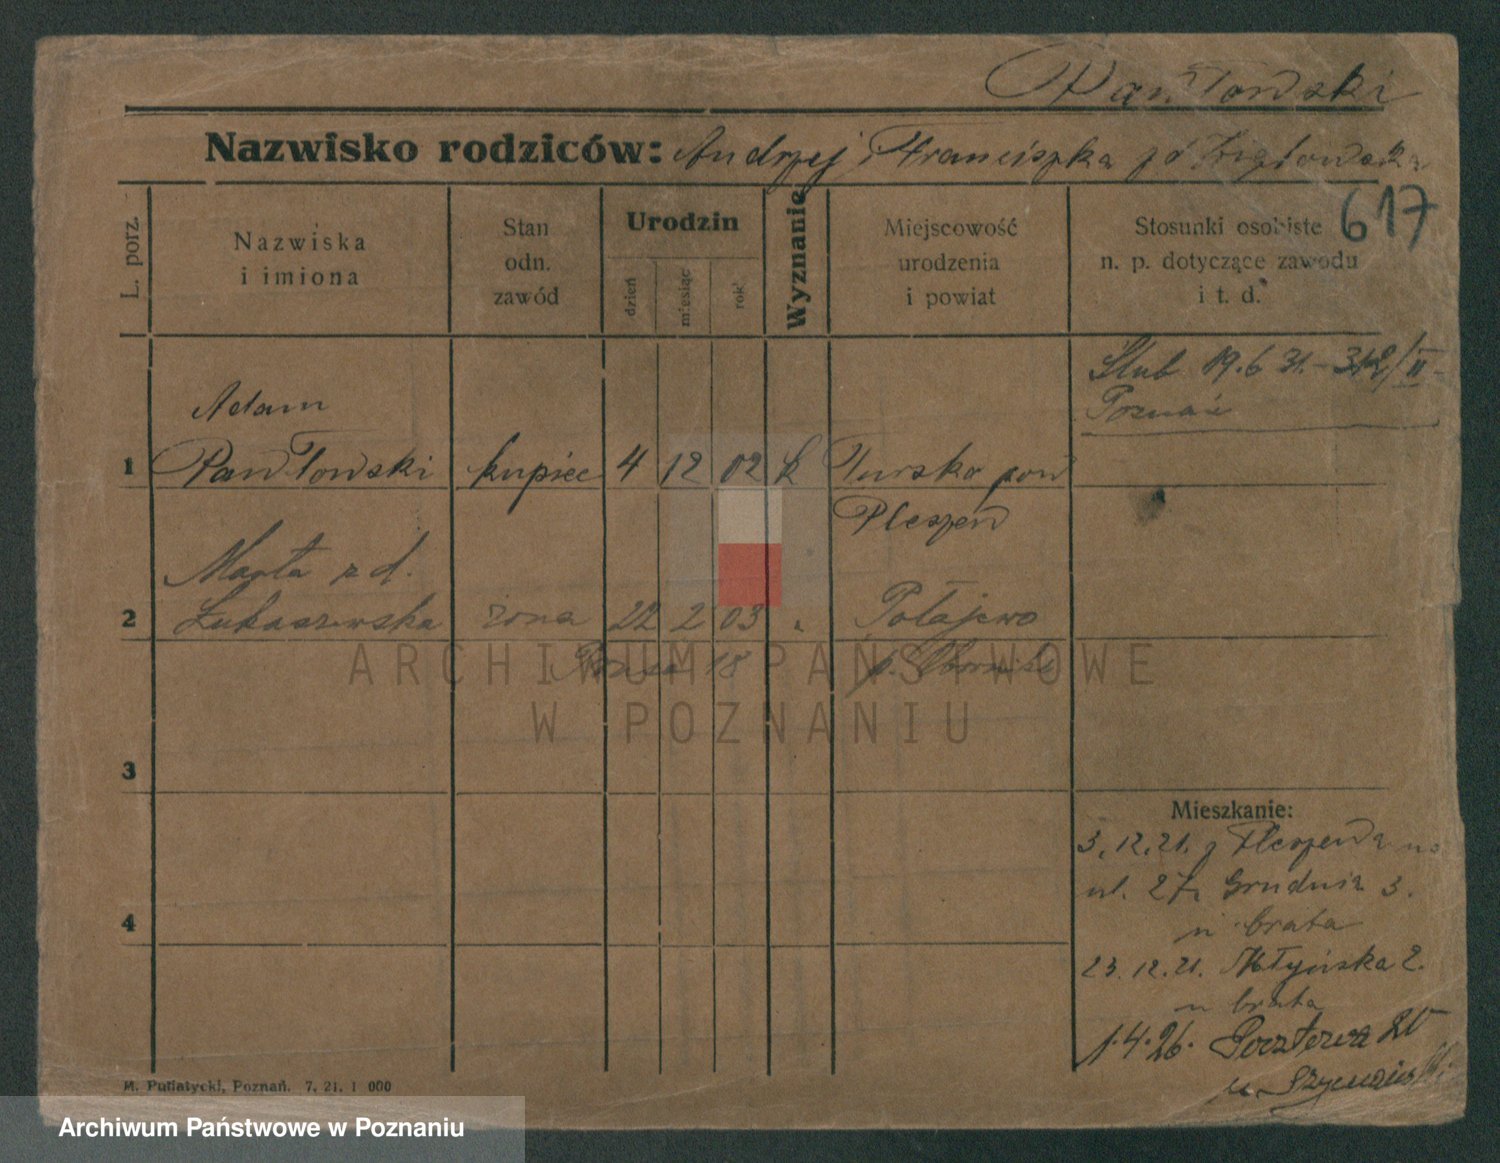 Pawłowski
Nazwisko rodziców: Andrzej i Franciszka zd
617
L. porz.
Nazwiska
i imiona
Stan
odn.
zawód
Urodzin
dzień
miesiąc
rok
Wyznanie
Miejscowość
urodzenia
i powiat
Stosunki osobiste
n. p. dotyczące zawodu
i t. d.
Ślub 19.6 31. - 342/II -
Poznań
Adam
1 Pawłowski kupiec 4 12 02 k Tursko pow
Pleszew
Marta z d.
2 Łukaszewska żona 22 2 03 " Połajewo
18 p. Oborniki
3
4
Mieszkanie:
3.12.21. z Pleszewa na
ul. 27. Grudnia 3.
u brata
23.12.21. Młyńska 2.
u brata
1.4.26. Pocztowa 25
u. Szymański
M. Putiatycki, Poznań. 7. 21. 1 000
ARCHIWUM PAŃSTWOWE
W POZNANIU
Archiwum Państwowe w Poznaniu